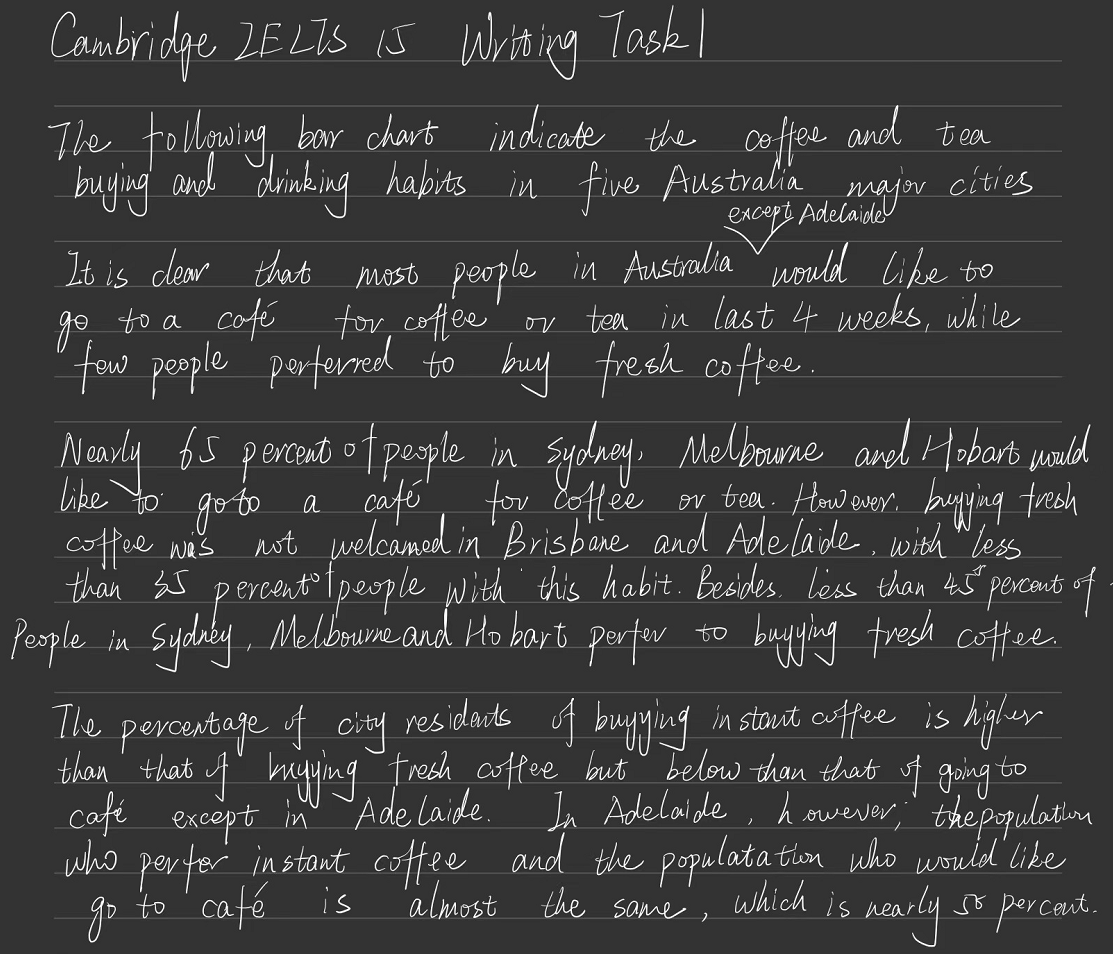 Cambridge IELTS 15 Writing Task 1
The following bar chart indicate the coffee and tea
buying and drinking habits in five Australia major cities
except Adelaide
It is clear that most people in Australia would like to
go to a café for coffee or tea in last 4 weeks, while
few people perferred to buy fresh coffee.
Nearly 65 percent of people in Sydney, Melbourne and Hobart would
like to go to a café for coffee or tea. However, buyying fresh
coffee was not welcamed in Brisbane and Adelaide, with less
than 35 percent of people with this habit. Besides, less than 45 percent of
People in Sydney, Melbourne and Hobart perfer to buyying fresh coffee.
The percentage of city residents of buyying instant coffee is higher
than that of buyying fresh coffee but below than that of going to
café except in Adelaide. In Adelaide, however, the population
who perfer instant coffee and the populatation who would like
go to café is almost the same, which is nearly 50 percent.